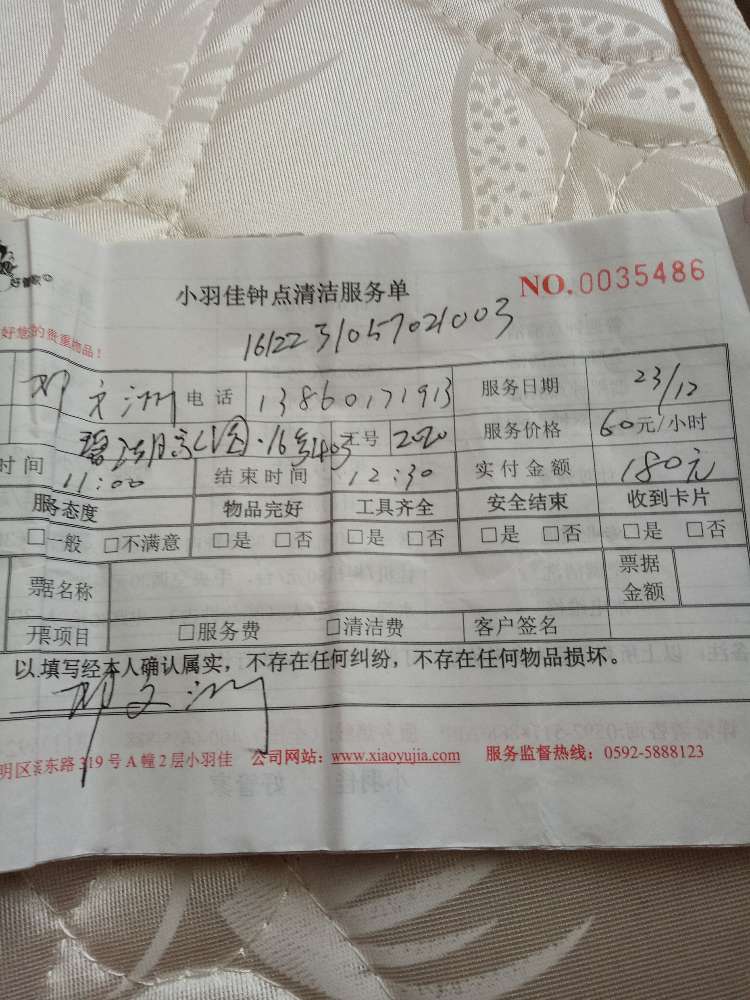 好管家
小羽佳钟点清洁服务单 NO.0035486
好您的贵重物品！
1612231057021003
邓文洲 电话 13860171913 服务日期 23/12
16号403 工号 2020 服务价格 60元/小时
时间 11:00 结束时间 12:30 实付金额 180元
服务态度 物品完好 工具齐全 安全结束 收到卡片
□一般 □不满意 □是 □否 □是 □否 □是 □否 □是 □否
票据名称 票据金额
开票项目 □服务费 □清洁费 客户签名
以 填写经本人确认属实，不存在任何纠纷，不存在任何物品损坏。
邓文洲
明区 东路319号A幢2层小羽佳 公司网站：www.xiaoyujia.com 服务监督热线：0592-5888123